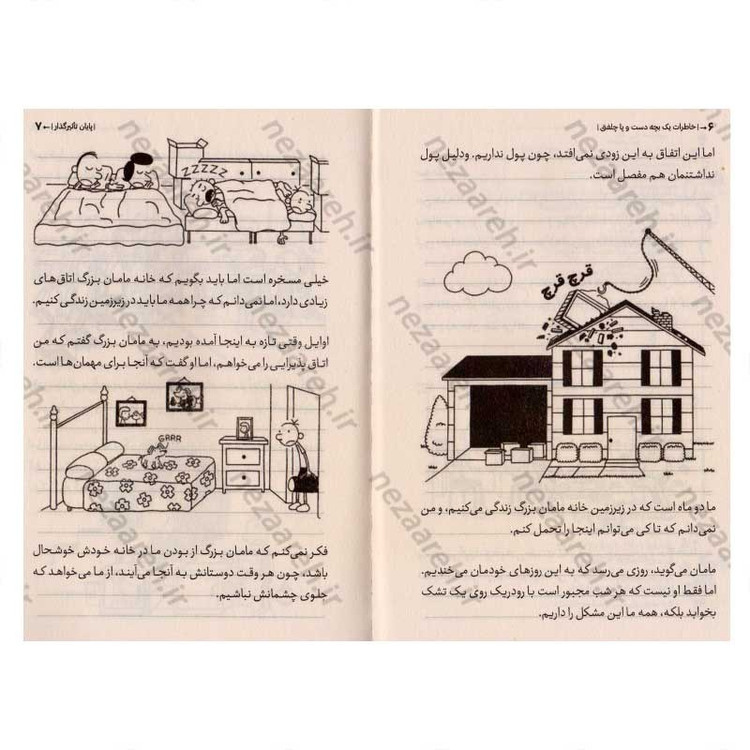 ۶ → | خاطرات یک بچه دست و پا چلفتی |
اما این اتفاق به این زودی نمی‌افتد، چون پول نداریم. ودلیل پول
نداشتنمان هم مفصل است.
قرچ قرچ
ما دو ماه است که در زیرزمین خانه مامان بزرگ زندگی می‌کنیم، و من
نمی‌دانم که تا کی می‌توانم اینجا را تحمل کنم.
مامان می‌گوید، روزی می‌رسد که به این روزهای خودمان می‌خندیم.
اما فقط او نیست که هر شب مجبور است با رودریک روی یک تشک
بخوابد بلکه، همه ما این مشکل را داریم.
| پایان تأثیرگذار | ← ۷
ZZZZZ
خیلی مسخره است اما باید بگویم که خانه مامان بزرگ اتاق‌های
زیادی دارد، اما نمی‌دانم که چرا همه ما باید در زیرزمین زندگی کنیم.
اوایل وقتی تازه به اینجا آمده بودیم، به مامان بزرگ گفتم که من
اتاق پذیرایی را می‌خواهم، اما او گفت که آنجا برای مهمان‌ها است.
GRRR
فکر نمی‌کنم که مامان بزرگ از بودن ما در خانه خودش خوشحال
باشد، چون هر وقت دوستانش به آنجا می‌آیند، از ما می‌خواهد که
جلوی چشمانش نباشیم.
nezaareh.ir